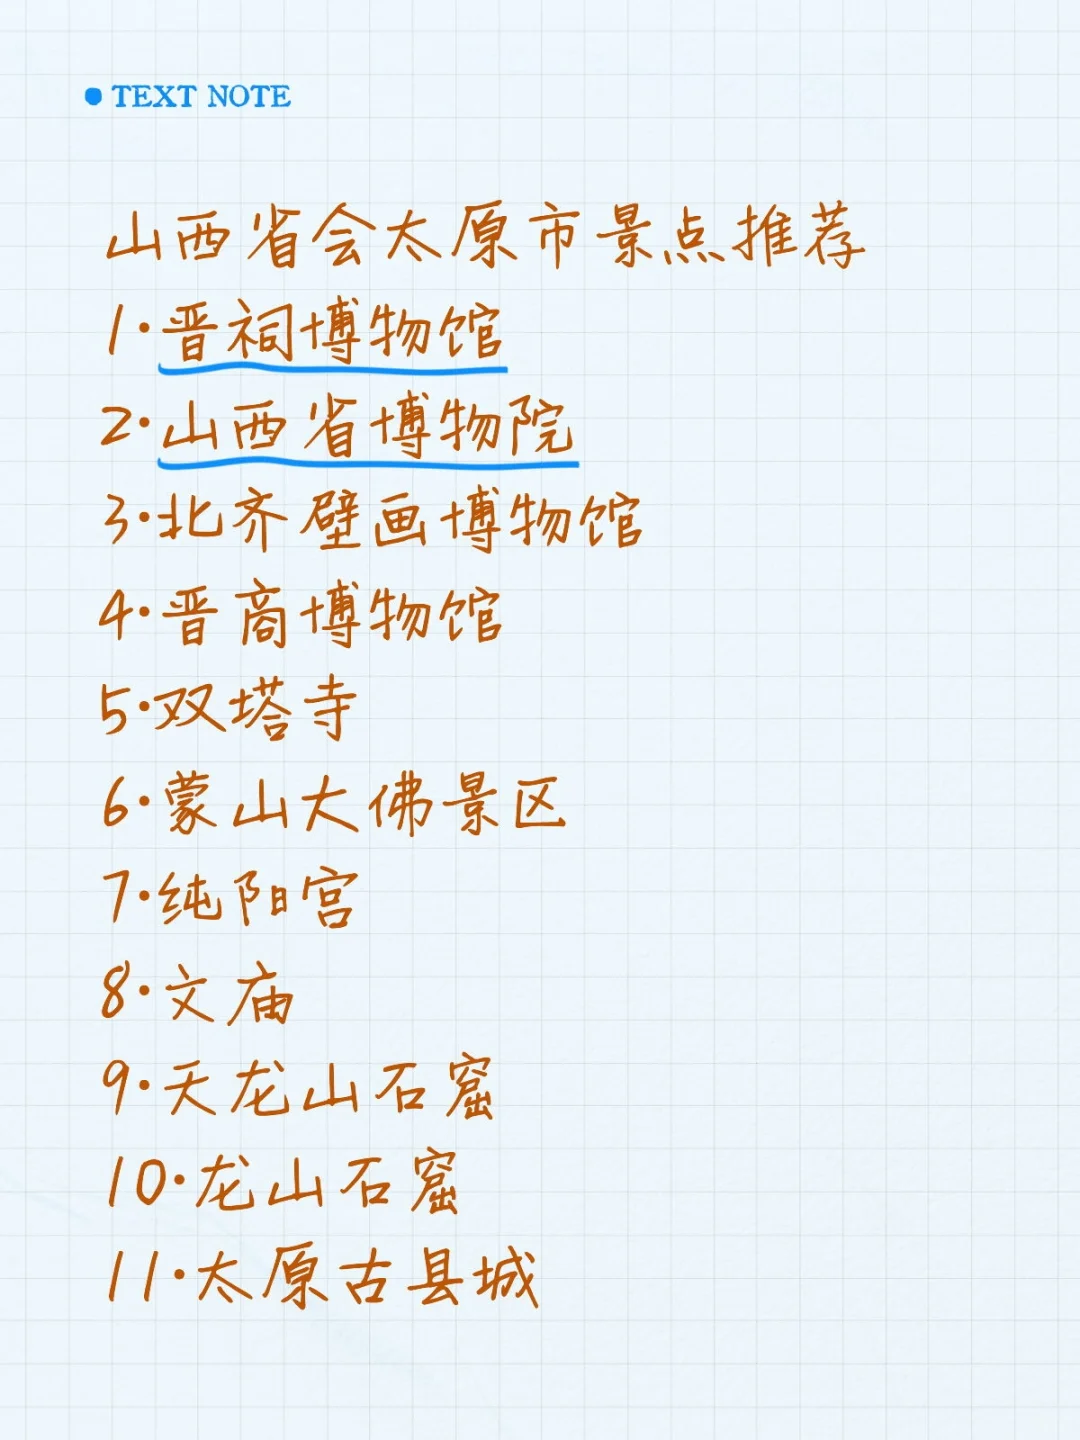 • TEXT NOTE
山西省会太原市景点推荐
1·晋祠博物馆
2·山西省博物院
3·北齐壁画博物馆
4·晋商博物馆
5·双塔寺
6·蒙山大佛景区
7·纯阳宫
8·文庙
9·天龙山石窟
10·龙山石窟
11·太原古县城